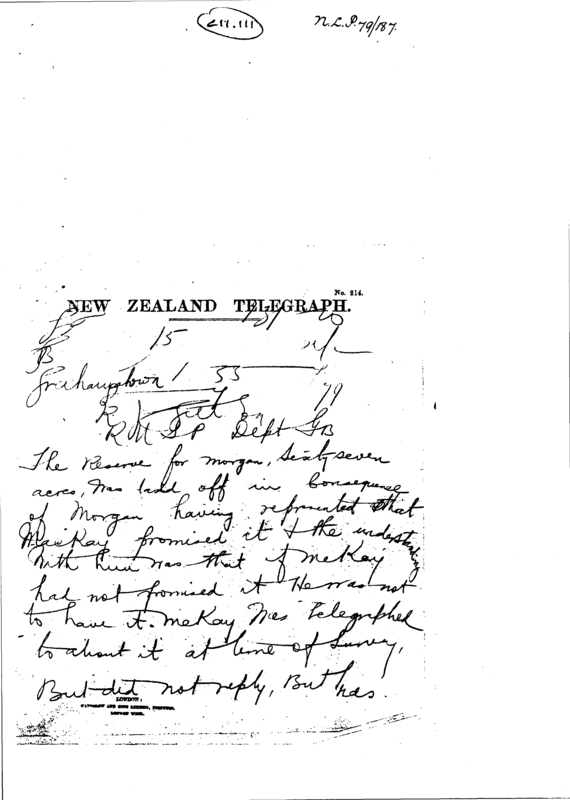 N.L.P. 79/187.
No. 214.
NEW ZEALAND TELEGRAPH.
15
Grahamstown 1 33
79
R M Dept GB
The Reserve for Morgan, Sixty seven
acres, was laid off in consequence
of Morgan having represented that
MacKay promised it & the understanding
with him was that if McKay
had not promised it He was not
to have it. McKay was telegraphed
to about it at time of Survey,
But did not reply, But has.
LONDON: